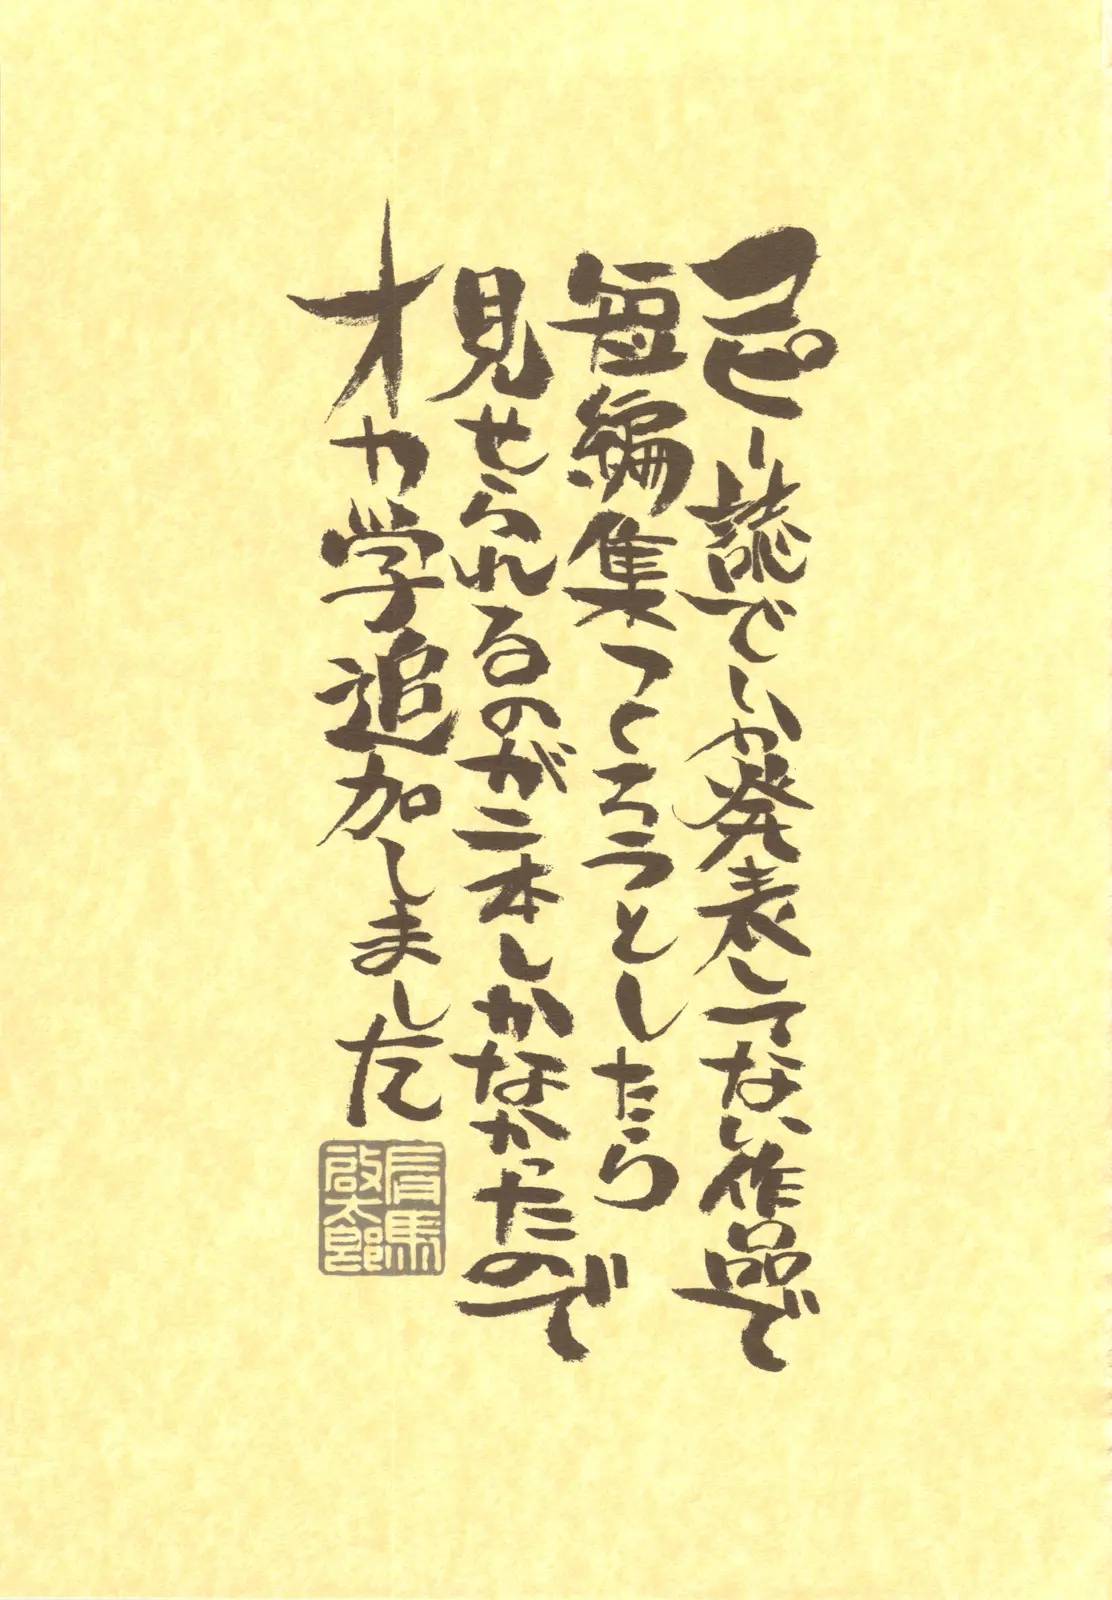 コピー誌でしか発表してない作品で
短編集つくろうとしたら
見せられるのが二本しかなかったので
オカ学追加しました
有馬
啓太郎